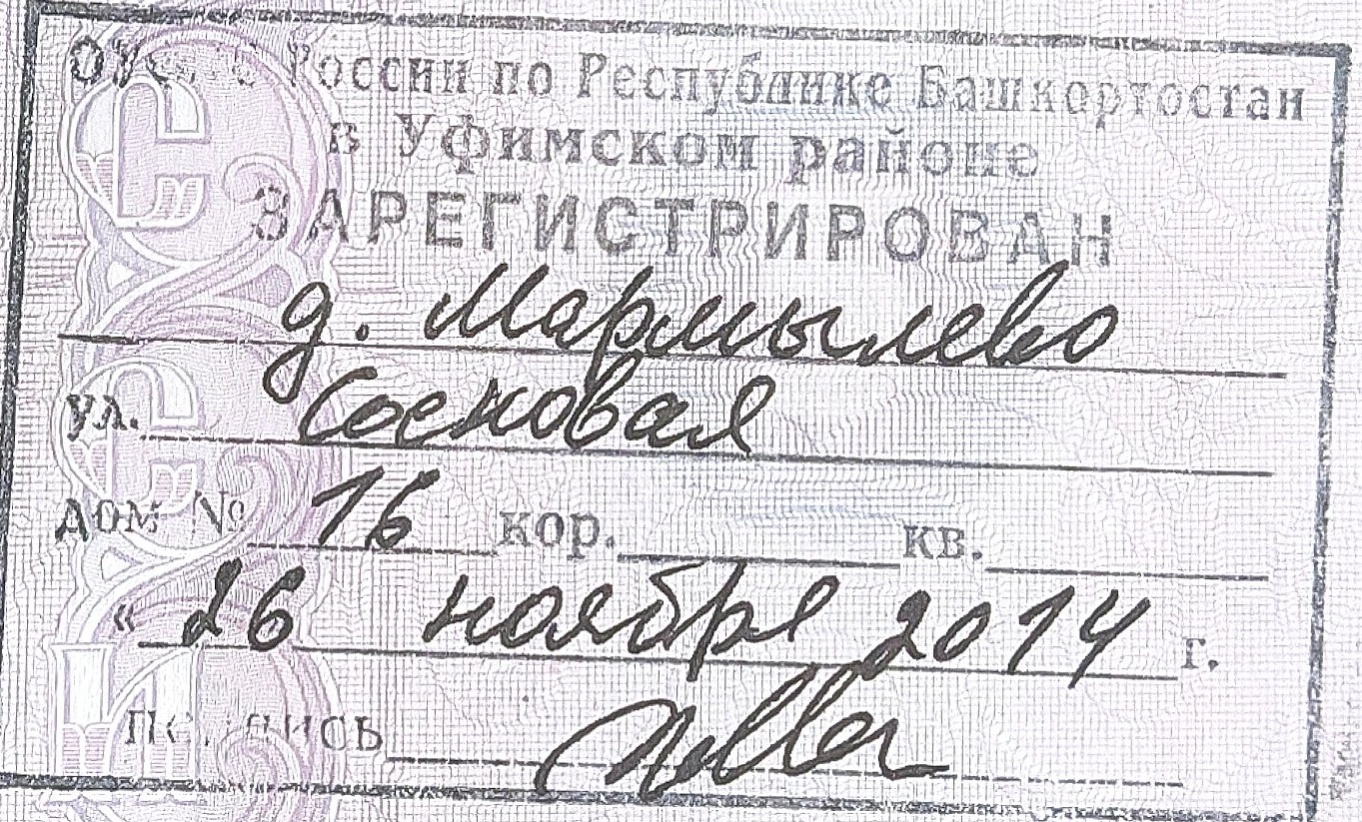 ОУФМС России по Республике Башкортостан
в Уфимском районе
ЗАРЕГИСТРИРОВАН
д. Мармылево
ул. Сосновая
дом № 16 кор. кв.
« 26 ноября 2014 г.
Подпись